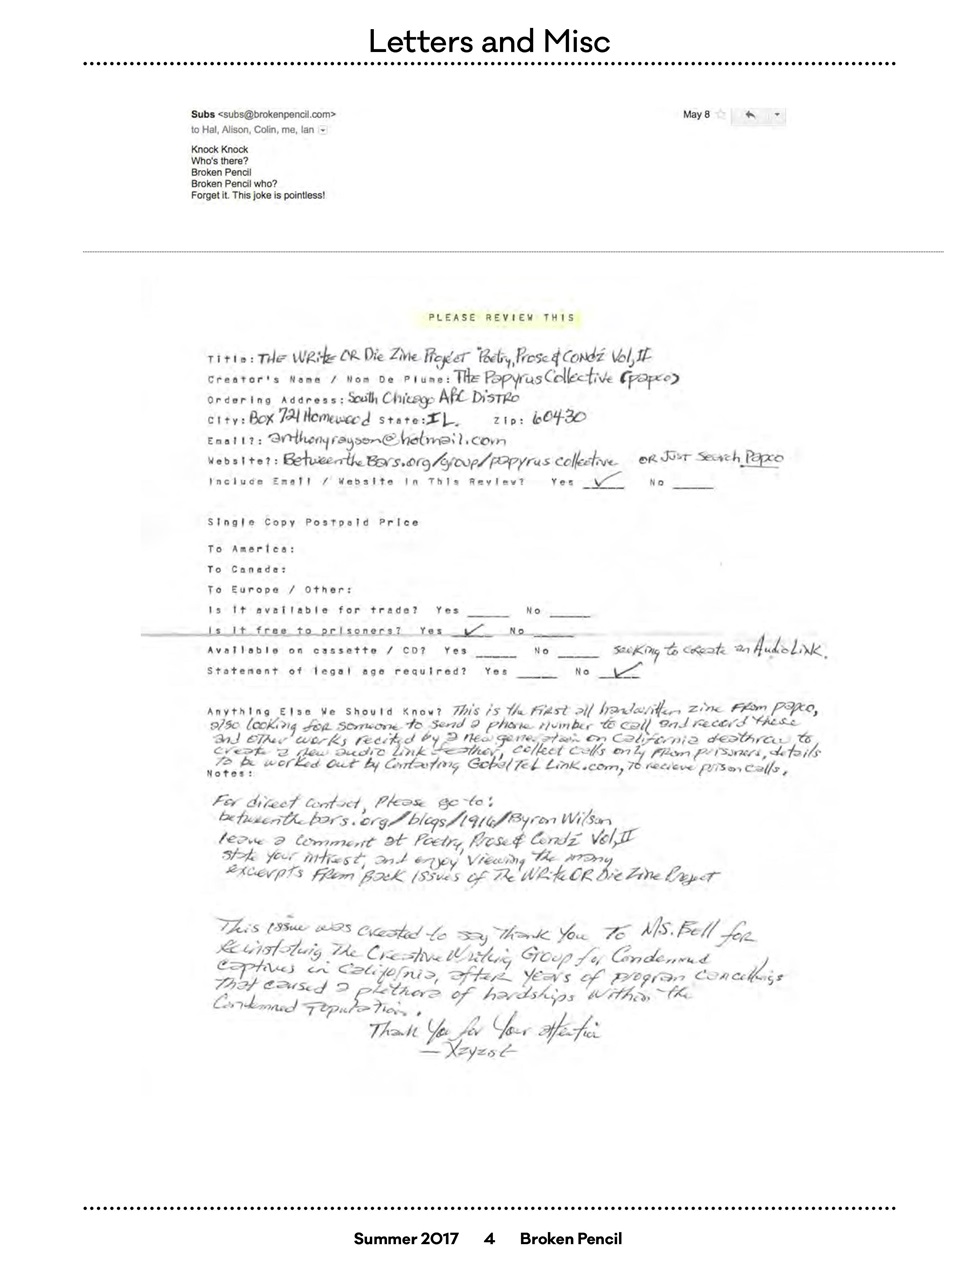 Letters and Misc
Subs <subs@brokenpencil.com>
May 8
to Hal, Alison, Colin, me, Ian
Knock Knock
Who's there?
Broken Pencil
Broken Pencil who?
Forget it. This joke is pointless!
PLEASE REVIEW THIS
Title: THE WRITE OR Die Zine Project "Poetry, Prose & Condé Vol, II
Creator's Name / Nom De Plume: THE Papyrus Collective (papco)
Ordering Address: South Chicago ABC DISTRO
City: Box 721 Homewood State: IL. Zip: 60430
Email?: anthonyrayson@hotmail.com
Website?: BetweentheBars.org/group/papyrus collective OR JUST Search Papco
Include Email / Website In This Review? Yes ✓ No
Single Copy Postpaid Price
To America:
To Canada:
To Europe / Other:
Is it available for trade? Yes No
Is it free to prisoners? Yes ✓ No
Available on cassette / CD? Yes No seeking to create an Audio Link.
Statement of legal age required? Yes No ✓
Anything Else We Should Know? This is the First all handwritten zine From papco,
also looking for someone to send a phone number to call and record these
and other works recited by a new generation on California deathrow to
create a new audio link feather, collect calls only from prisoners, details
To be worked out by Contacting GobalTel Link.com, To recieve prison calls.
Notes:
For direct contact, Please go to:
betweenthebars.org/blogs/1916/Byron Wilson
leave a comment at Poetry, Prose & Condé Vol, II
state your intrest, and enjoy viewing the many
excerpts From Back issues of The Write OR Die Zine Project
This issue was created to say Thank You To Ms. Bell for
Reinstating The Creative Writing Group for Condemned
captives in California, after years of program cancellings
That caused a plethora of hardships within the
Condemned Population.
Thank You for Your attention
—Xzyzst
Summer 2017 4 Broken Pencil